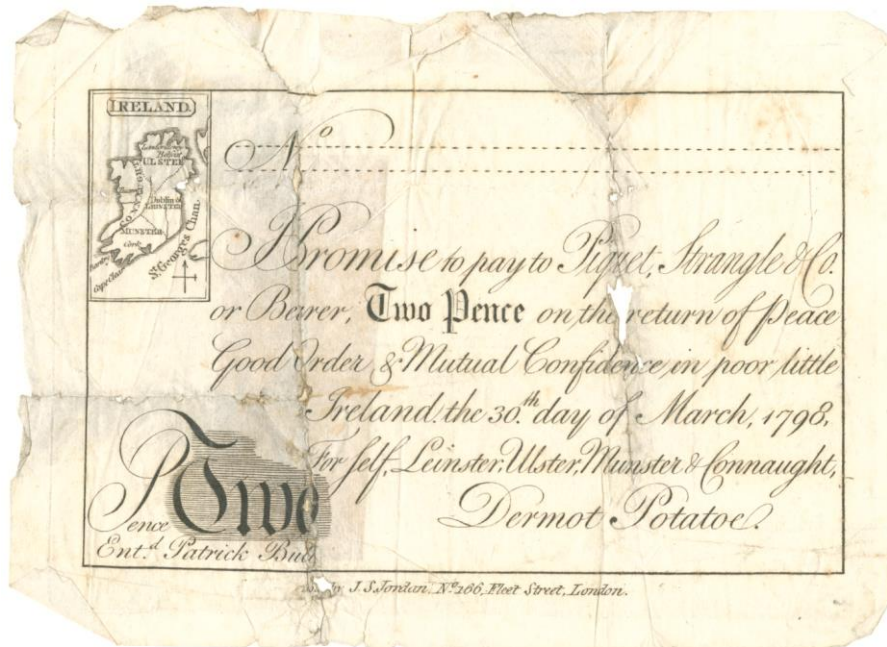 IRELAND.
ULSTER
CONNAUGHT
Dublin
LEINSTER
MUNSTER
Cork
St. Georges Chan.
No
I Promise to pay to Piquet, Strangle & Co.
or Bearer, Two Pence on the return of Peace
Good Order & Mutual Confidence in poor little
Ireland. the 30.th day of March, 1798,
For self, Leinster, Ulster, Munster & Connaught,
Pence Two
Dermot Potatoe.
Ent.d Patrick Bull
by J. S. Jordan. No. 166, Fleet Street, London.